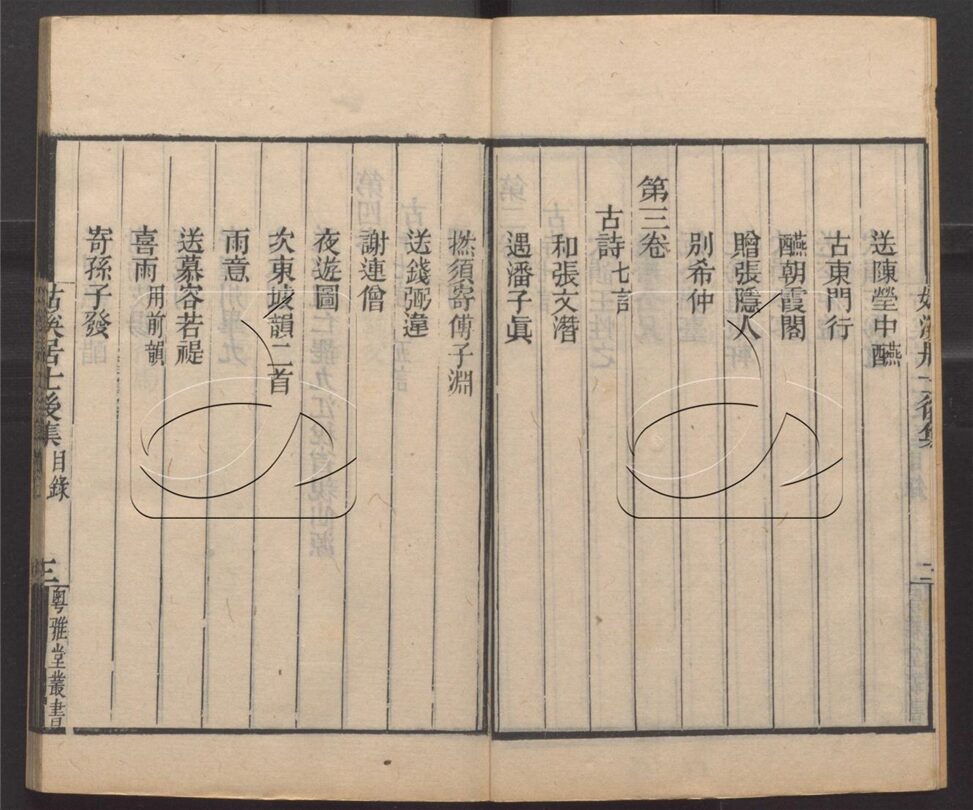 送陳瑩中醼
古東門行
醼朝霞閣
贈張隱人
別希仲
第三卷
古詩七言
和張文潛
遇潘子眞
撚須寄傅子淵
送錢弼違
謝連僧
夜遊圖
次東坡韻二首
雨意
送慕容若禔
喜雨用前韻
寄孫子發
姑溪居士後集 目錄 三 粵雅堂叢書